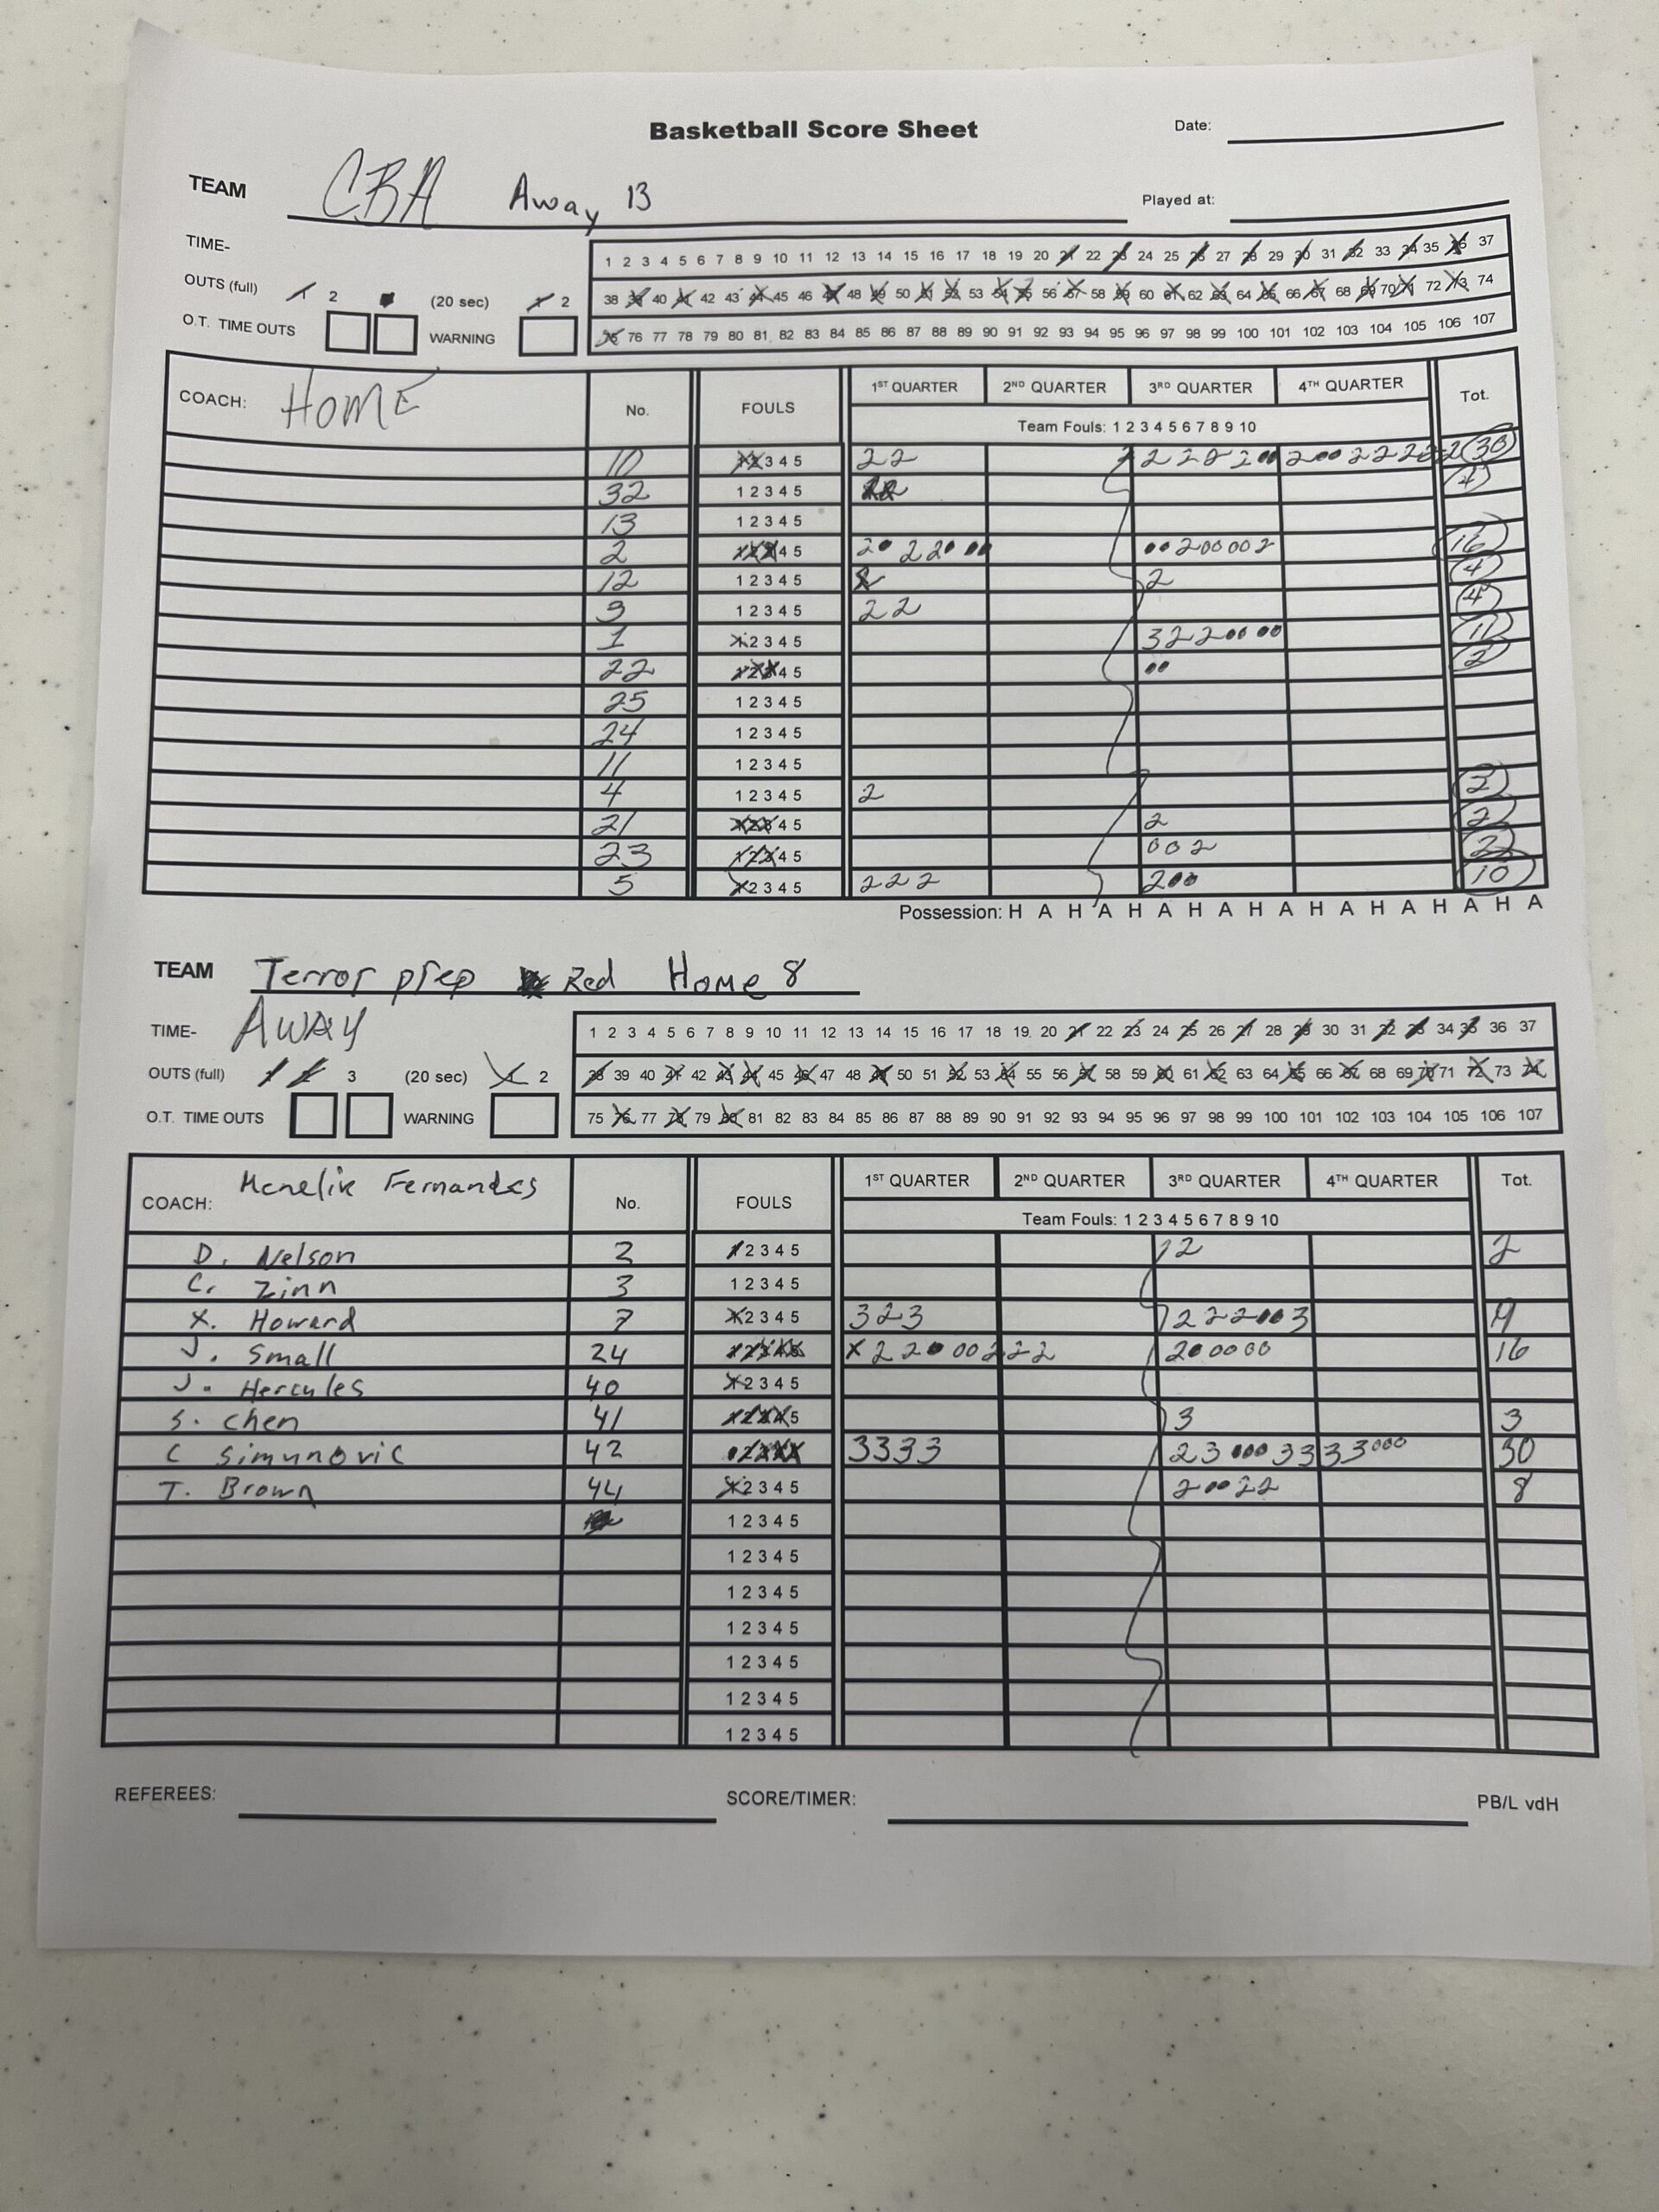 Basketball Score Sheet Date:
TEAM CBA Away 13 Played at:
TIME-
OUTS (full) 1 2 (20 sec) 1 2
O.T. TIME OUTS WARNING
1 2 3 4 5 6 7 8 9 10 11 12 13 14 15 16 17 18 19 20 21 22 23 24 25 26 27 28 29 30 31 32 33 34 35 36 37
38 39 40 41 42 43 44 45 46 47 48 49 50 51 52 53 54 55 56 57 58 59 60 61 62 63 64 65 66 67 68 69 70 71 72 73 74
75 76 77 78 79 80 81 82 83 84 85 86 87 88 89 90 91 92 93 94 95 96 97 98 99 100 101 102 103 104 105 106 107
COACH: HOME No. FOULS 1ST QUARTER 2ND QUARTER 3RD QUARTER 4TH QUARTER Tot.
Team Fouls: 1 2 3 4 5 6 7 8 9 10
10 1 2 3 4 5 2 2 2 2 2 2 2 2 2 2 2 30
32 1 2 3 4 5 4
13 1 2 3 4 5
2 1 2 3 4 5 2 2 2 2 0 0 0 0 2 16
12 1 2 3 4 5 2 4
9 1 2 3 4 5 2 2 4
1 1 2 3 4 5 3 2 2 11
22 1 2 3 4 5 2
25 1 2 3 4 5
24 1 2 3 4 5
11 1 2 3 4 5
4 1 2 3 4 5 2 2
21 1 2 3 4 5 2 2
23 1 2 3 4 5 0 0 2 2
5 1 2 3 4 5 2 2 2 2 10
Possession: H A H A H A H A H A H A H A H A H A
TEAM Terror prep Red Home 8
TIME- AWAY
OUTS (full) 1 2 3 (20 sec) 1 2
O.T. TIME OUTS WARNING
1 2 3 4 5 6 7 8 9 10 11 12 13 14 15 16 17 18 19 20 21 22 23 24 25 26 27 28 29 30 31 32 33 34 35 36 37
38 39 40 41 42 43 44 45 46 47 48 49 50 51 52 53 54 55 56 57 58 59 60 61 62 63 64 65 66 67 68 69 70 71 72 73 74
75 76 77 78 79 80 81 82 83 84 85 86 87 88 89 90 91 92 93 94 95 96 97 98 99 100 101 102 103 104 105 106 107
COACH: Menelik Fernandes No. FOULS 1ST QUARTER 2ND QUARTER 3RD QUARTER 4TH QUARTER Tot.
Team Fouls: 1 2 3 4 5 6 7 8 9 10
D. Nelson 2 1 2 3 4 5 2 2
C. Zinn 3 1 2 3 4 5
X. Howard 7 1 2 3 4 5 3 2 3 2 2 2 3
J. Small 24 1 2 3 4 5 X 2 2 0 0 2 2 2 2 0 0 0 0 16
J. Hercules 40 1 2 3 4 5
S. Chen 41 1 2 3 4 5 3 3
C Simunovic 42 1 2 3 4 5 3 3 3 3 2 3 3 3 3 3 0 0 0 30
T. Brown 44 1 2 3 4 5 2 2 2 8
1 2 3 4 5
1 2 3 4 5
1 2 3 4 5
1 2 3 4 5
1 2 3 4 5
1 2 3 4 5
1 2 3 4 5
REFEREES: SCORE/TIMER: PB/L vdH